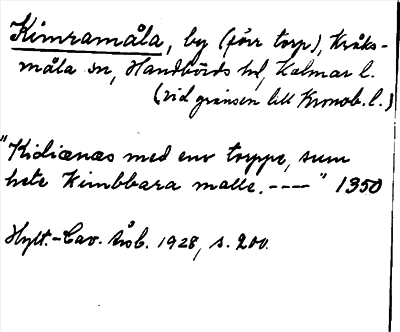 Kimramåla, by (förr torp), Kråks-
måla sn, Handbörds hd, Kalmar l.
(vid gränsen till Kronob. l.)
"Kidiænæs med eno torppe, sum
hete Kimbbara malle. ----" 1350
Hylt.-Cav. Årsb. 1928, s. 200.